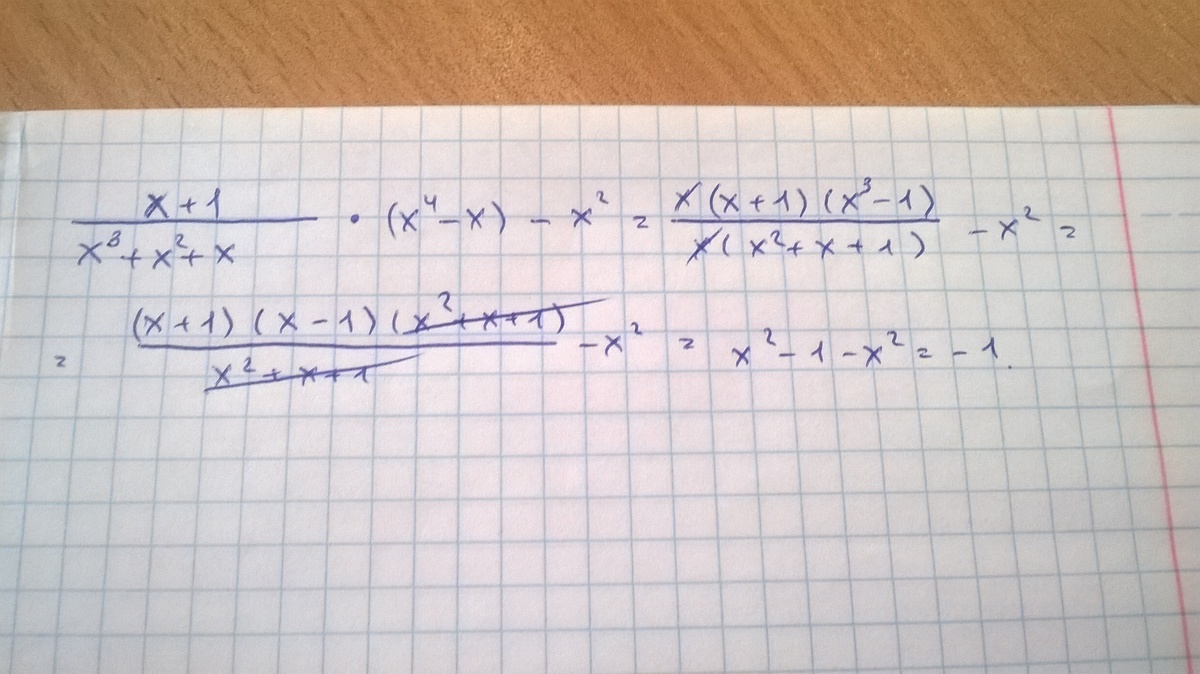 (x+1)/(x³+x²+x) · (x⁴-x) - x² = x(x+1)(x³-1)/x(x²+x+1) - x² =
= (x+1)(x-1)(x²+x+1)/(x²+x+1) - x² = x²-1-x² = -1.